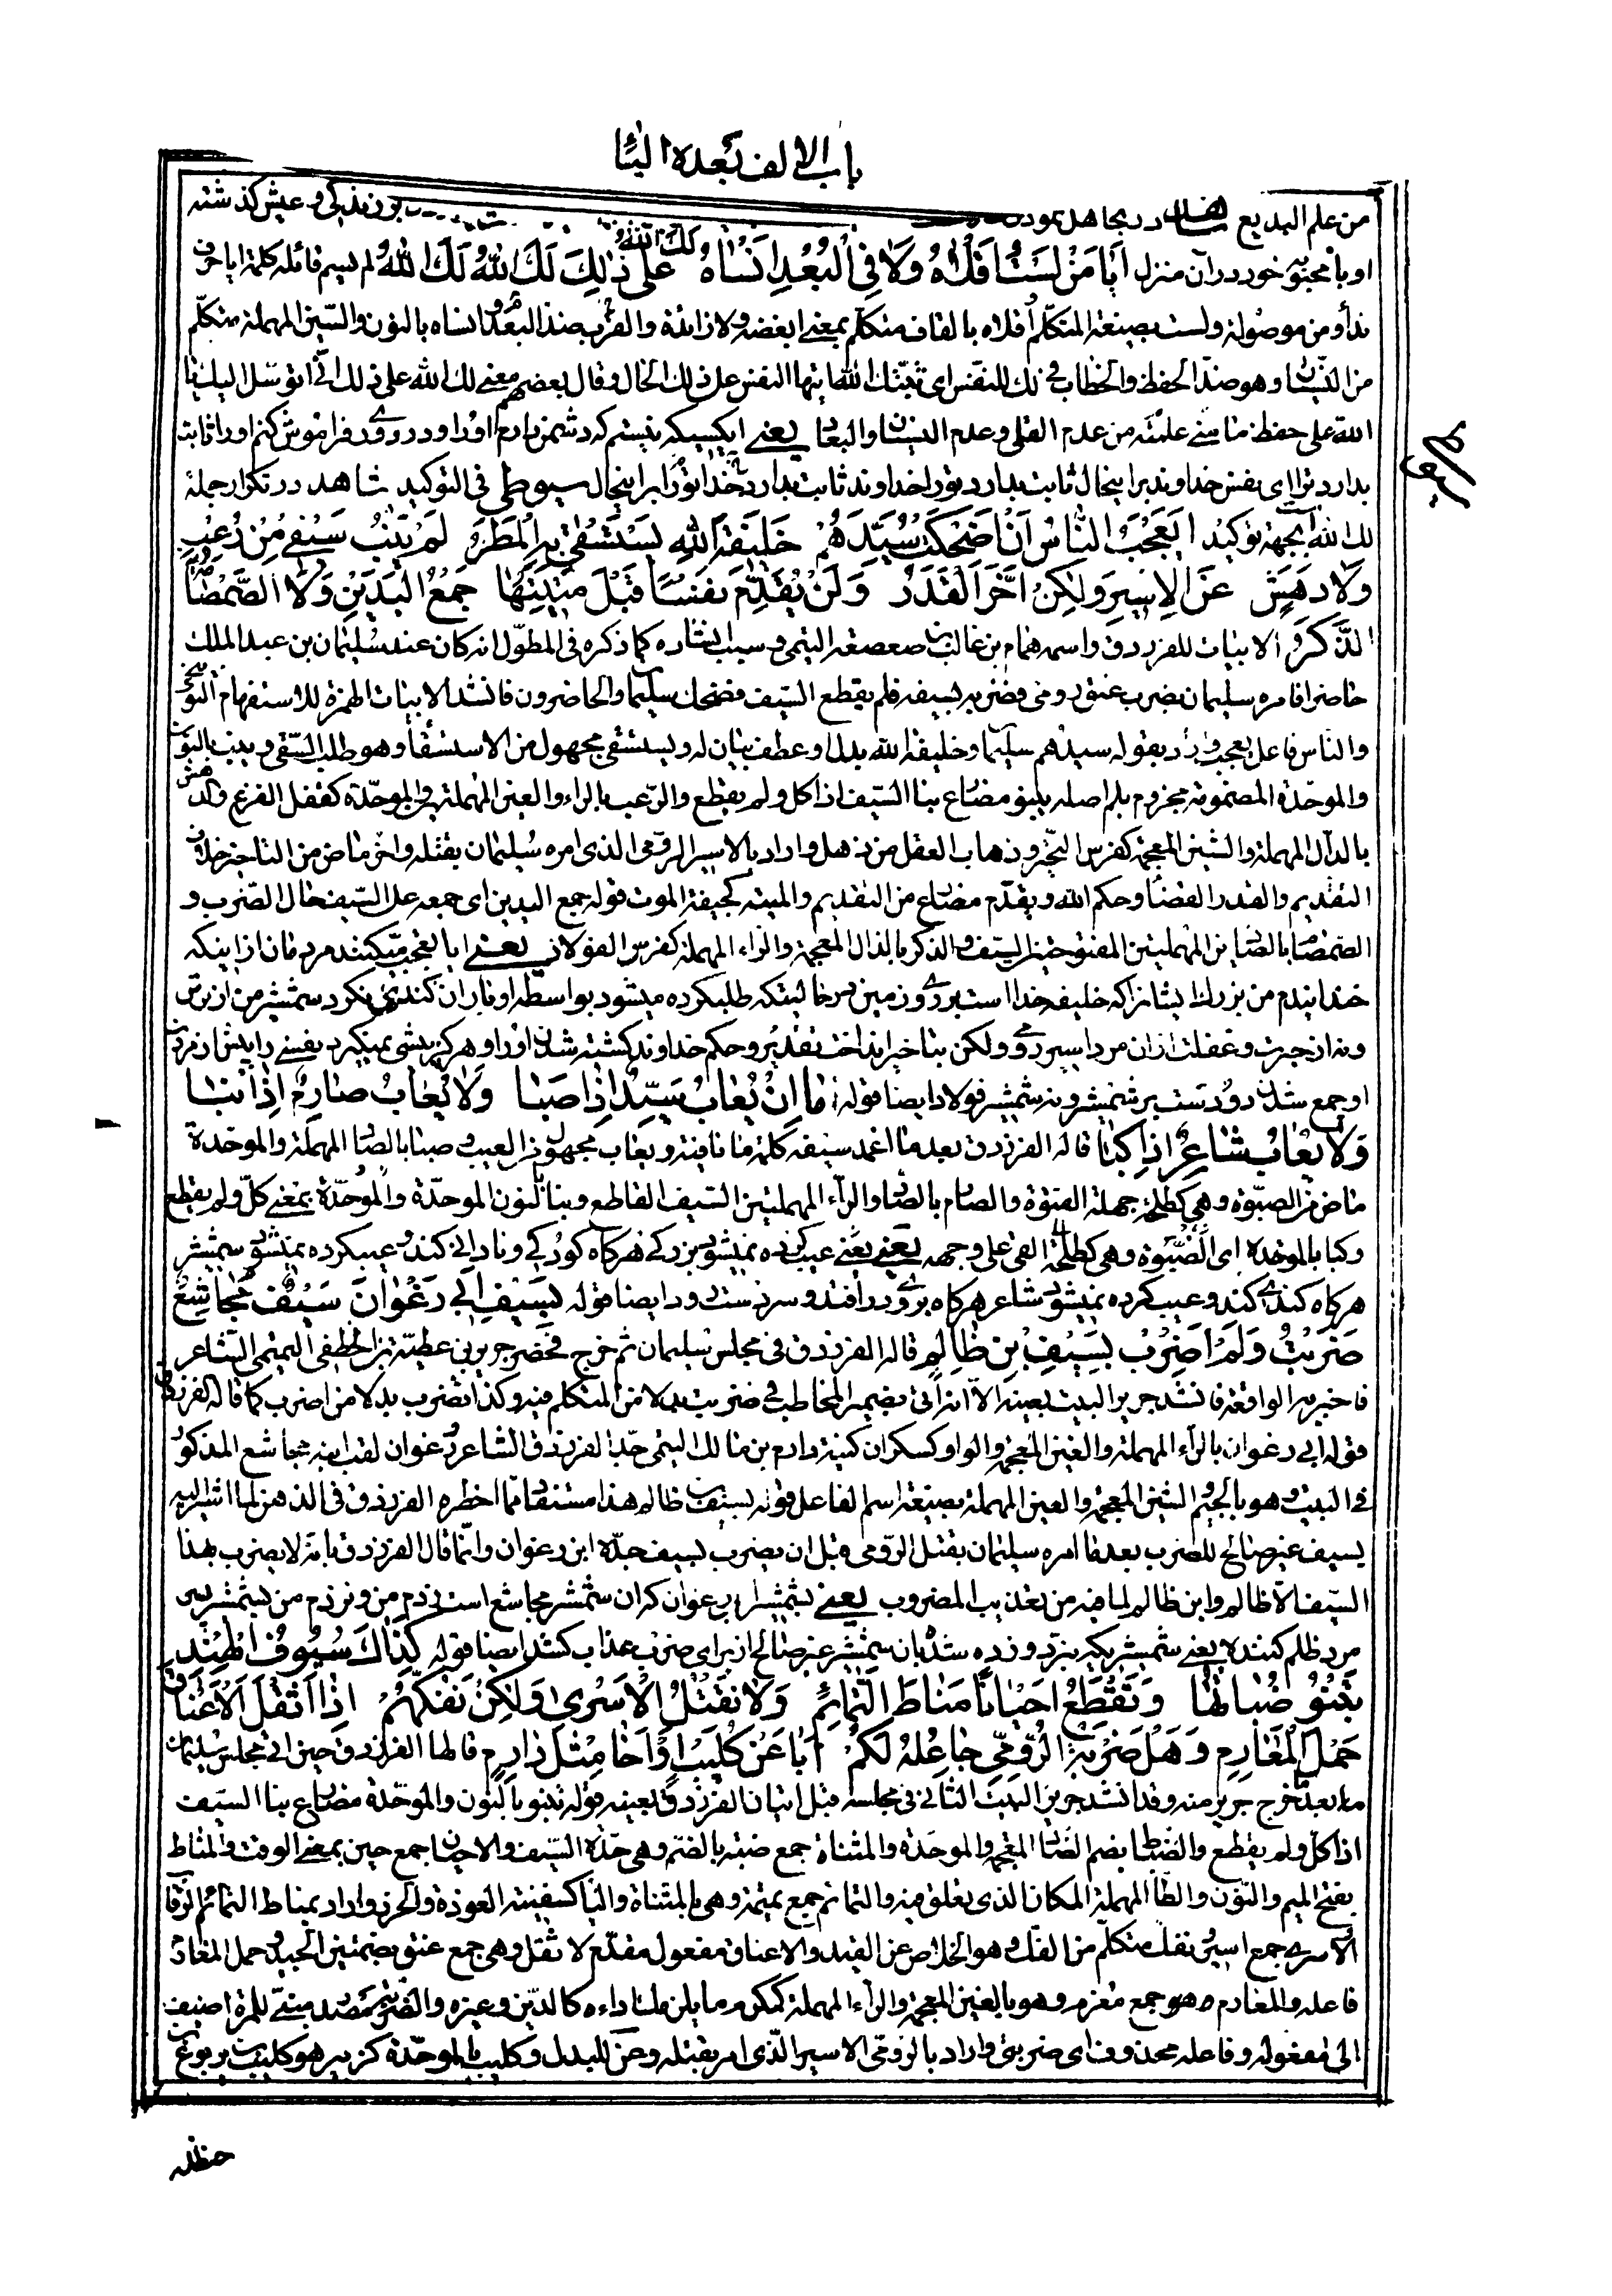 باب الالف بعده الیاء
من علم البدیع در تجاهل نمودن بر زندگی و عیش گذشته
او با محبوبه خود در آن منزل اَیا مَنْ لَسْتُ اَقْلاهُ وَلا فِی الْبُعْدِ اَنْساهُ لَكَ اللّٰهُ عَلی ذٰلِكَ لَكَ اللّٰهُ لَكَ اللّٰهُ لم یسم قائله کلمة ایا حرف
نداء ومن موصولة ولست بصیغة المتکلم اقلاه بالقاف متکلم بمعنی ابغضه ولا زائدة والقرب ضد البعد وانساه بالنون والسین المهملة متکلم
من النسیان وهو ضد الحفظ والخطاب فی لك للنفس ای ثبتك الله ایتها النفس علی ذلك الحال وقال بعضهم معنی لك الله علی ذلك انی اتوسل الیك یا
الله علی حفظ ما منی علمته من عدم القلی وعدم النسیان والبعاد یعنی ایکسیکه نیستم که دشمن دارم او را و در دوری فراموش کنم او را ثابت
بدارد ترا ای نفس خداوند بر اینحال ثابت بدارد تو را خداوند ثابت بدارد خدا تو را بر اینحال سیوطی فی التوکید شاهد در تکرار جمله
لك الله بجهة توکید اَیَعْجَبُ النّاسُ اَنْ اَضْحَکْتُ سَیِّدَهُمْ خَلیفَةَ اللهِ یُسْتَسْقی بِهِ الْمَطَرُ لَمْ یَنْبُ سَیْفِی مِنْ رُعْبٍ
وَلا دَهَشٍ عَنِ الْاَسِیرِ وَلٰکِنْ اَخَّرَ الْقَدَرُ وَلَنْ یُقَدِّمَ نَفْساً قَبْلَ مِیتَتِها جَمْعُ الْیَدَیْنِ وَلَا الصَّمْصامَةُ
الذَّکَرُ الابیات للفرزدق واسمه همام بن غالب بن صعصعة التیمی وسبب انشاده کما ذکره فی المطول انه کان عند سلیمان بن عبد الملك
حاضرا فامره سلیمان بضرب عنق رومی فضربه بسیفه فلم یقطع السیف فضحك سلیمان والحاضرون فانشد الابیات الهمزة للاستفهام التوبیخی
والناس فاعل یعجب واراد بقوله سیدهم سلیمان وخلیفة الله بدل او عطف بیان له ویستسقی مجهول من الاستسقاء وهو طلب السقی وینب بالنون
والموحدة المضمومة مجزوم بلم اصله ینبو مضارع نبا السیف اذا کل ولم یقطع والرعب بالراء والعین المهملة والموحدة کقفل الفزع والدهش
بالدال المهملة والشین المعجمة کفرس التحیر وذهاب العقل من ذهل واراد بالاسیر الرومی الذی امره سلیمان بقتله واخر ماض من التاخیر خلاف
التقدیم والقدر القضاء وحکم الله ویقدم مضارع من التقدیم والمیتة کجیفة الموت قوله جمع الیدین ای جمعه علی السیف حال الضرب و
الصمصامة بالصادین المهملتین المفتوحتین السیف والذکر بالذال المعجمة والراء المهملة کفرس الفولاد یعنی ایا تعجب میکنند مردمان از اینکه
خندانیدم من بزرك ایشانرا که خلیفه خدا است بروی زمین در حالیتکه طلبکرده میشود بواسطه او باران کندی نکرد شمشیر من از ترس
و نه از حیرت و غفلت از آن مرد اسیر رومی ولکن بتاخیر انداخت تقدیر و حکم خداوند کشته شدن او را و هرگز پیشی نمیگیرد نفسی را پیش از مردن
او جمع شدن دو دست بر شمشیر و نه شمشیر فولاد ایضا قوله ما اِنْ یُعابُ سَیِّدٌ اِذا صَبا وَلا یُعابُ صارِمٌ اِذا نَبا
وَلا یُعابُ شاعِرٌ اِذا کَبا قاله الفرزدق بعد ما اغمد سیفه کلمة ما نافیة ویعاب مجهول من العیب وصبا بالصاد المهملة والموحدة
ماض من الصبوة وهی کطلحة جهلة الفتوة والصارم بالصاد والراء المهملتین السیف القاطع ونبا بالنون الموحدة والموحدة بمعنی کل ولم یقطع
وکبا بالموحدة ای الکبوة وهی کطلحة القی علی وجهه یعنی یعنی عیب کرده نمیشود بزرگی هرگاه کودکی و نادانی کند و عیبکرده نمیشود شمشیر
هرگاه کندی کند و عیب کرده نمیشود شاعر هرگاه بروی درافتد و سردست رود ایضا قوله بِسَیْفِ اَبی رَغْوانَ سَیْفِ مُجاشِعٍ
ضَرَبْتُ وَلَمْ اَضْرِبْ بِسَیْفِ بْنِ ظالِمٍ قاله الفرزدق فی مجلس سلیمان ثم خرج فحضر جریر بن عطیة بن الخطفی التمیمی الشاعر
فاخبر بالواقعة فانشد جریر البیت بعینه الا انه اتی بضمیر المخاطب فی ضربت بدلا من المتکلم فیه وکذا تضرب بدلا من اضرب کما قاله الفرزدق
قوله ابی رغوان بالراء المهملة والغین المعجمة والواو کسکران کنیة دارم بن مالك التیمی جد الفرزدق الشاعر ورغوان لقب ابنه مجاشع المذکور
فی البیت وهو بالجیم والشین المعجمة والعین المهملة بصیغة اسم الفاعل قوله بسیف بن ظالم هذا مستنقا مما اخطره الفرزدق فی الذهن لما اشیر الیه
بسیف غیر صالح للضرب بعد ما امره سلیمان بقتل الرومی قبل ان یضرب بسیف جده ابن رغوان وانما قال الفرزدق بانه لا یضرب بهذا
السیف الا ظالم وابن ظالم لما فیه من تعذیب المضروب یعنی بشمشیر ابی رغوان که آن شمشیر مجاشع است زدم من و نزدم من بشمشیر پسر
مرد ظلم کننده یعنی شمشیریکه نبرد و زده شد بآن شمشیر غیر صالح از برای ضرب عذاب کشد ایضا قوله کَذاكَ سُیُوفُ الْهِنْدِ
تَنْبُو ضُباتُها وَتَقْطَعُ اَحْیاناً مَناطَ التَّمائِمِ وَلا نَقْتُلُ الْاَسْری وَلٰکِنْ نَفُکُّهُمْ اِذا اَثْقَلَ الْاَعْناقَ
حَمْلُ الْمَغارِمِ وَهَلْ ضَرْبَةُ الرُّومِیِّ جاعِلَةٌ لَکُمْ اَباً عَنْ کُلَیْبٍ اَوْ اَخاً مِثْلَ دارِمٍ قالها الفرزدق حین اتی مجلس سلیمان
ما بعد خرج جریر منه وقد انشد جریر البیت الثانی فی مجلسه قبل اتیان الفرزدق بعینه قوله تنبو بالنون والموحدة مضارع نبا السیف
اذا کل ولم یقطع والضبات بضم الضاد المعجمة والموحدة والمثناة جمع ضبة بالضم وهی حدة السیف والاحیان جمع حین بمعنی الوقت والمناط
بفتح المیم والنون والطاء المهملة المکان الذی یعلق منه والتمائم جمع تمیمة وهی بالمثناة والتاء کسفینة العوذة والحرز واراد بمناط التمائم الرقاب
والاسری جمع اسیر ونفك متکلم من الفك وهو الخلاص عن القید والاعناق مفعول مقدم لاثقل وهی جمع عنق بضمتین الجید وحمل المغارم
فاعله والمغارم هو جمع مغرم وهو بالغین المعجمة والراء المهملة کمکرم ما یلزمك اداءه کالدین وغیره والضربة مصدر مبنی للمرة اضیف
الی مفعوله وفاعله محذوف ای ضربتی واراد بالرومی الاسیر الذی امر بقتله وعن للبدل وکلیب بالموحدة کزبیر هو کلیب بن یربوع بن
حنظلة